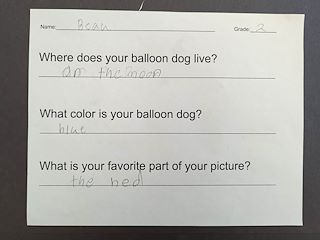 Name: Beau Grade: 2
Where does your balloon dog live?
on the moon
What color is your balloon dog?
blue
What is your favorite part of your picture?
the bed